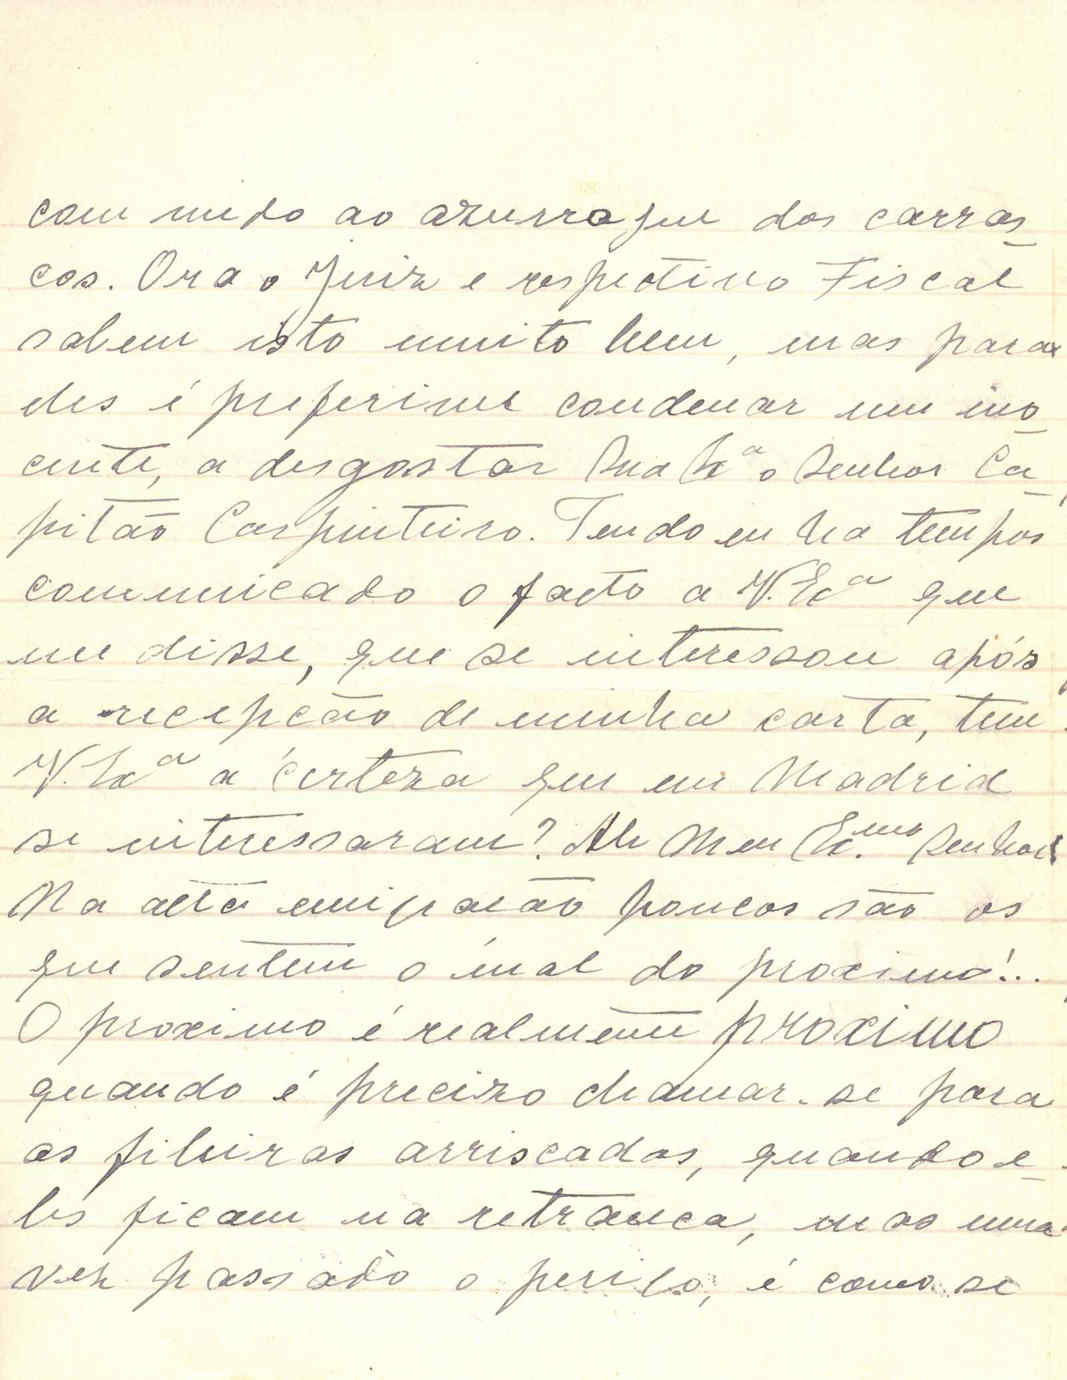 com medo ao azurrague dos carras_
cos. Ora o Juiz e respectivo Fiscal
sabem isto muito bem, mas para
eles é preferivel condenar um ino_
cente, a desgostar Sua Exª o Senhor Ca_
pitão Carpinteiro. Tendo eu ha tempos
comunicado o facto a V. Exª que
me disse, que se interessou após
a recepção de minha carta, tem
V. Exª a certeza que em Madrid
se interessaram? Ah Meu Ex.mo Senhor
Na alta emigração poucos são os
que sentem o mal do proximo!...
O proximo é realmente proximo
quando é precizo chamar-se para
as fileiras arriscadas, quando e_
les ficam na retranca, mas uma
vez passado o perigo, é como se